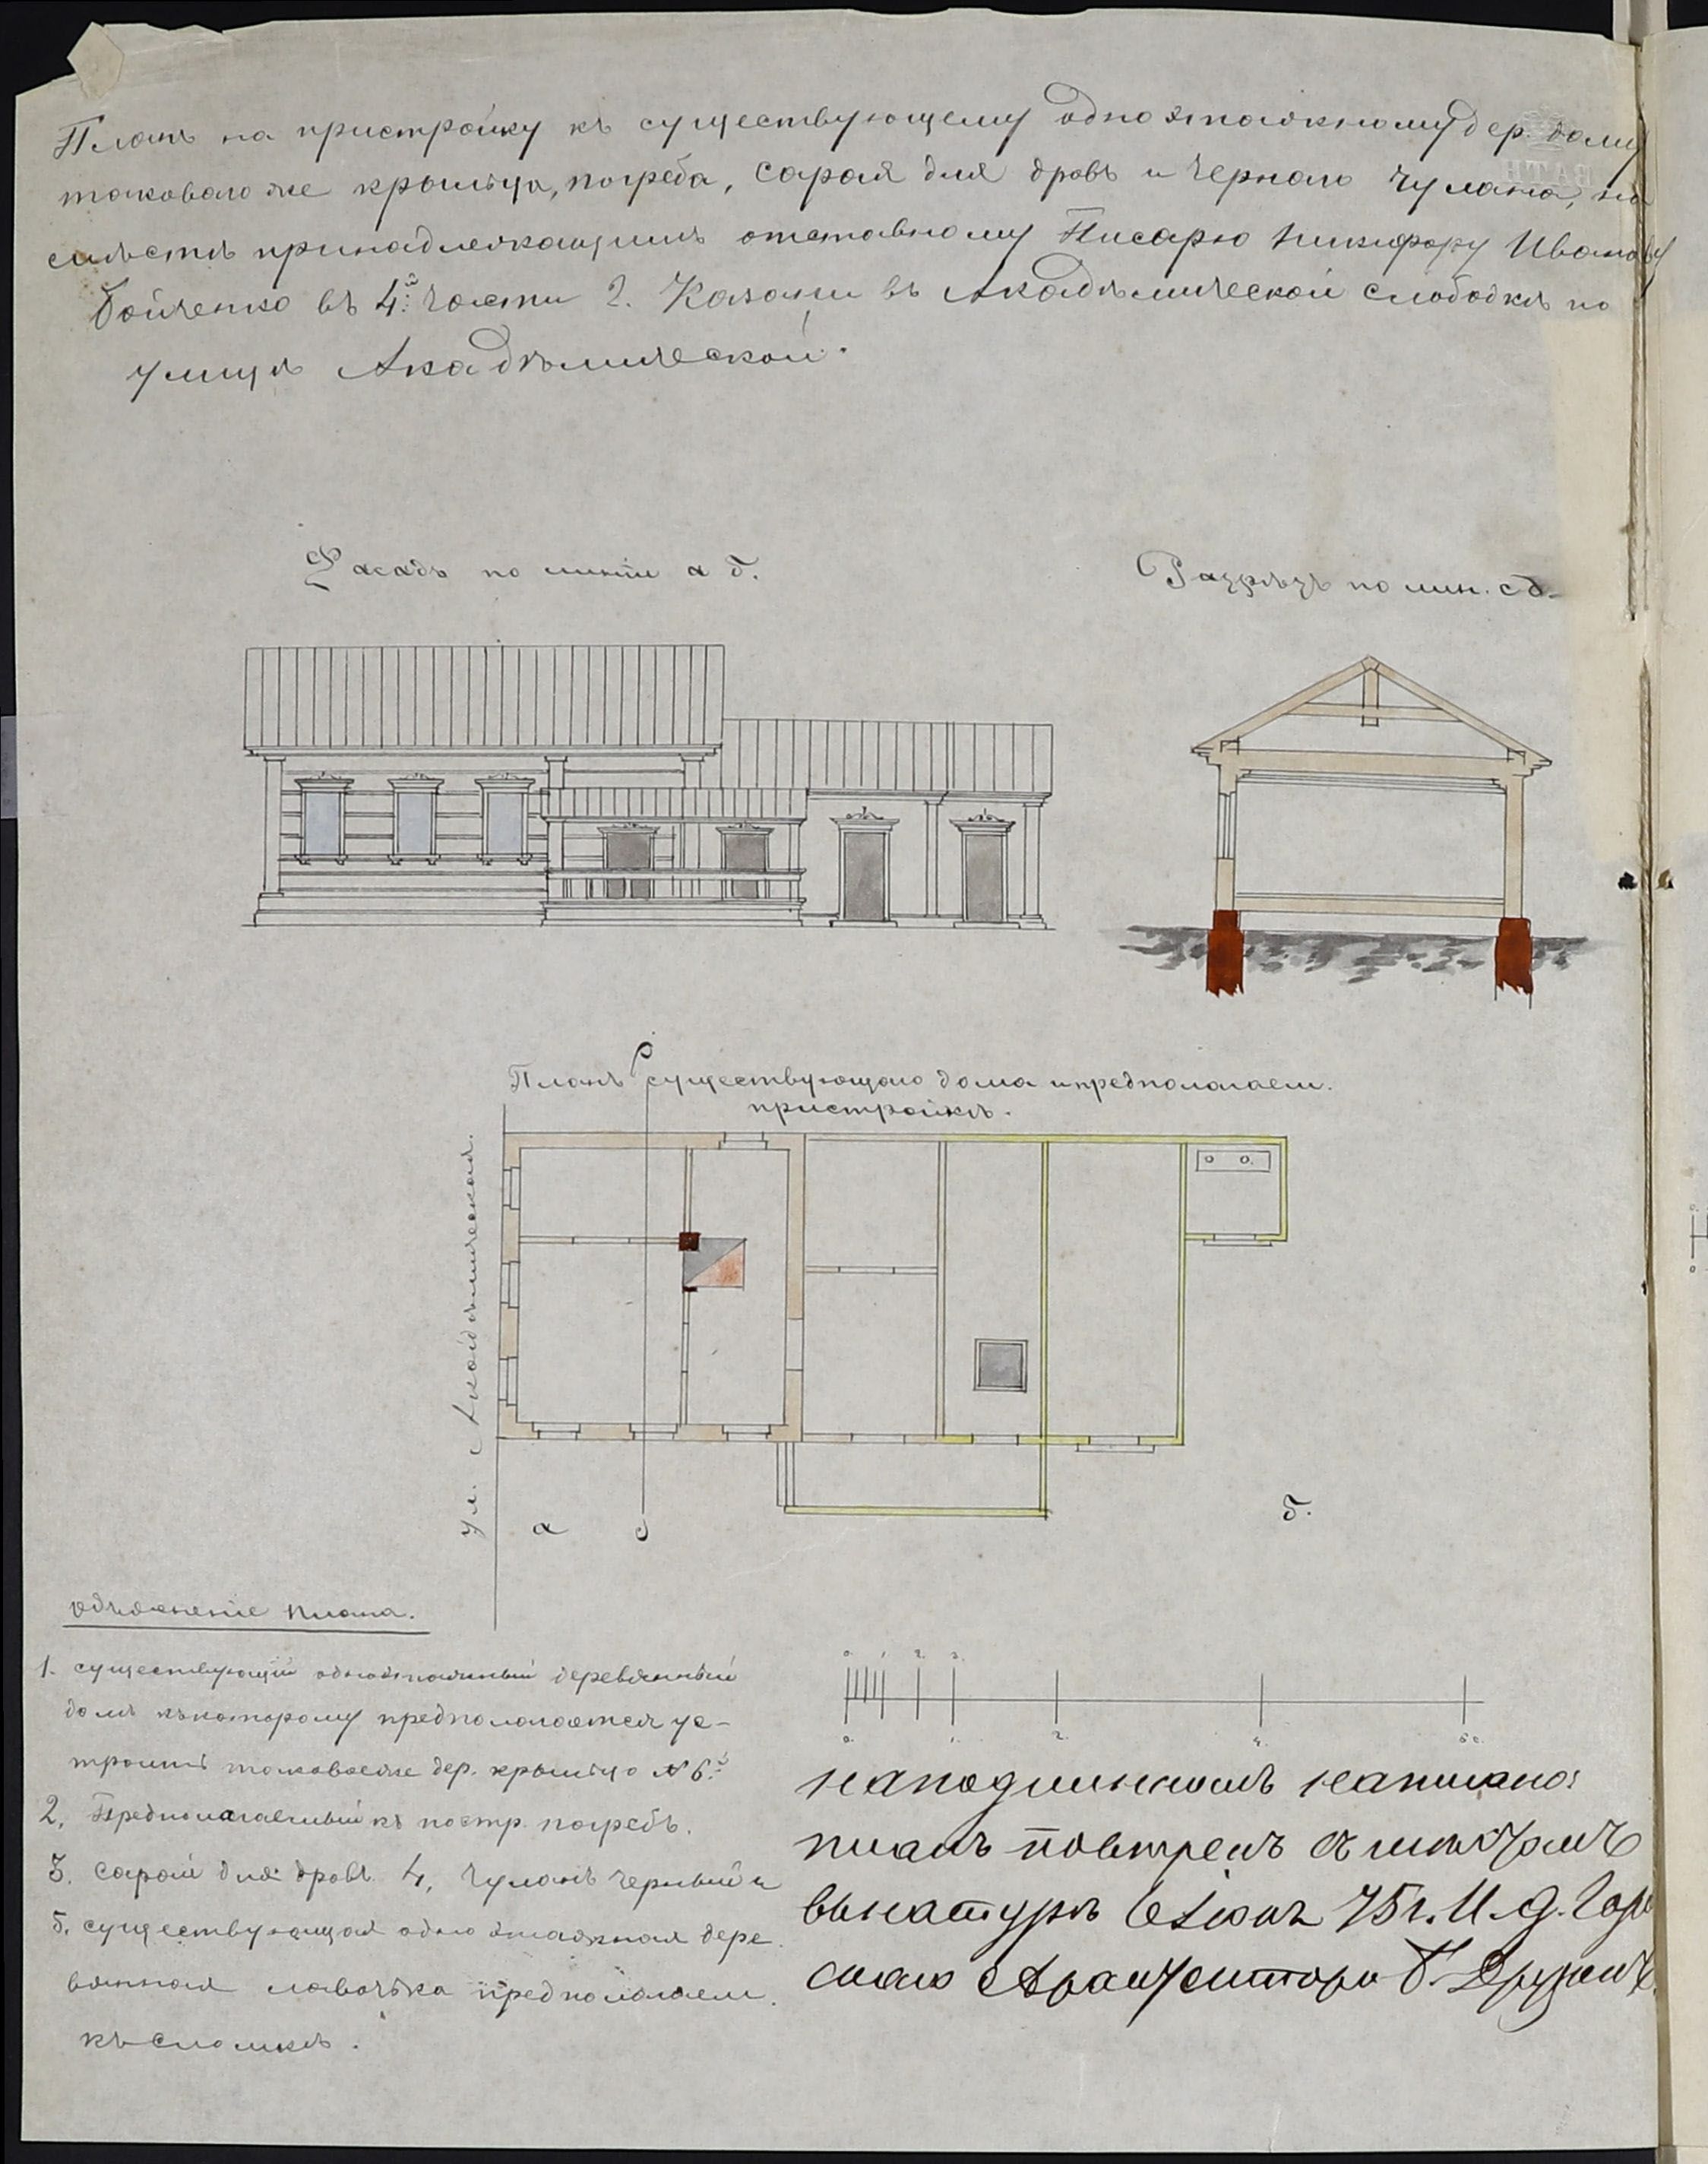 Планъ на пристройку къ существующему одноэтажному дер. дому
таковаго же крыльца, погреба, сарая для дровъ и чернаго чулана, на
мѣстѣ принадлежащимъ отставному Писарю Никифору Иванову
Бойченко въ 4й части г. Казани въ Академической слободкѣ по
улицѣ Академической.
Фасадъ по линіи а б.
Разрѣзъ по лин. с д.
Планъ существующаго дома и предполагаем.
пристройкѣ.
ул. Академическая.
а
с
б.
Объясненіе плана.
1. существующій одноэтажный деревянный
домъ къ которому предпологается ус-
троить таковое же дер. крыльцо № 6й
2, Предполагаемый къ постр. погребъ.
3. сарай для дровъ. 4, чуланъ черный и
5. существующая одно этажная дере
вянная лавочька предполагаем.
къ сломкѣ.
0. 1. 2. 3.
0. 1. 2. 4. 6 с.
На подлинномъ написано:
планъ повѣренъ
въ натурѣ 75 г. И. д. Гор
Архитектора